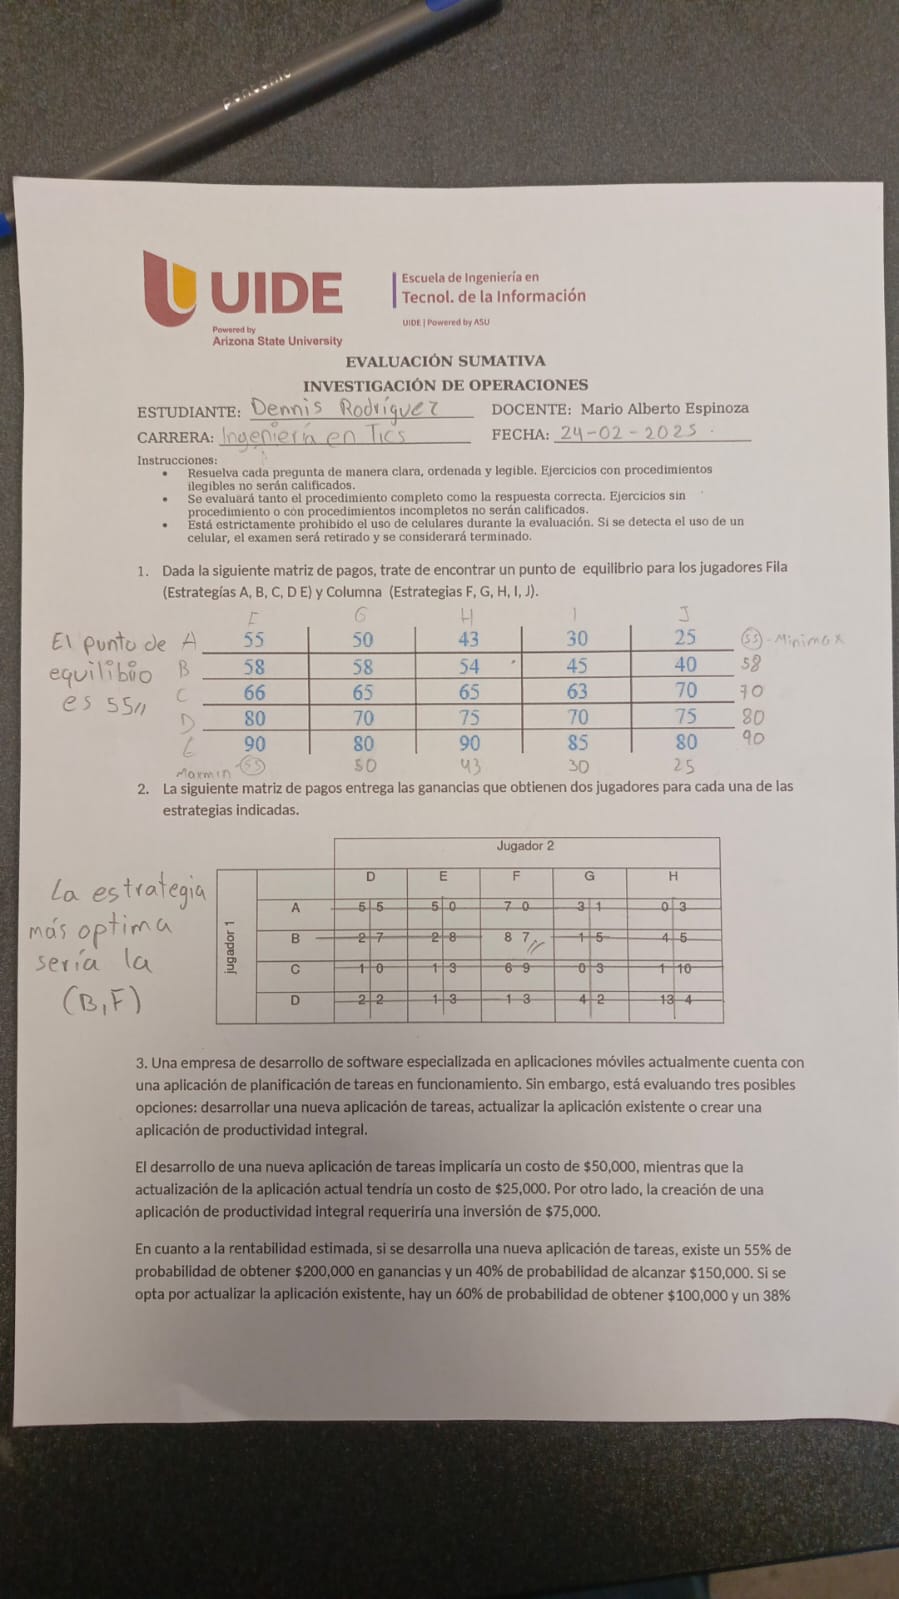 pentonic
UIDE
Powered by
Arizona State University
Escuela de Ingeniería en
Tecnol. de la Información
UIDE | Powered by ASU
EVALUACIÓN SUMATIVA
INVESTIGACIÓN DE OPERACIONES
ESTUDIANTE: Dennis Rodríguez DOCENTE: Mario Alberto Espinoza
CARRERA: Ingeniería en Tics FECHA: 24-02-2025
Instrucciones:
• Resuelva cada pregunta de manera clara, ordenada y legible. Ejercicios con procedimientos
ilegibles no serán calificados.
• Se evaluará tanto el procedimiento completo como la respuesta correcta. Ejercicios sin
procedimiento o con procedimientos incompletos no serán calificados.
• Está estrictamente prohibido el uso de celulares durante la evaluación. Si se detecta el uso de un
celular, el examen será retirado y se considerará terminado.
1. Dada la siguiente matriz de pagos, trate de encontrar un punto de equilibrio para los jugadores Fila
(Estrategías A, B, C, D E) y Columna (Estrategias F, G, H, I, J).
F G H I J
A 55 50 43 30 25 55 - Minimax
B 58 58 54 45 40 58
C 66 65 65 63 70 70
D 80 70 75 70 75 80
E 90 80 90 85 80 90
Maxmin 55 50 43 30 25
El punto de
equilibio
es 55//
2. La siguiente matriz de pagos entrega las ganancias que obtienen dos jugadores para cada una de las
estrategias indicadas.
Jugador 2
D E F G H
jugador 1
A 5 5 5 0 7 0 3 1 0 3
B 2 7 2 8 8 7// 1 5 4 5
C 1 0 1 3 6 9 0 3 1 10
D 2 2 1 3 1 3 4 2 13 4
La estrategia
más optima
sería la
(B,F)
3. Una empresa de desarrollo de software especializada en aplicaciones móviles actualmente cuenta con
una aplicación de planificación de tareas en funcionamiento. Sin embargo, está evaluando tres posibles
opciones: desarrollar una nueva aplicación de tareas, actualizar la aplicación existente o crear una
aplicación de productividad integral.
El desarrollo de una nueva aplicación de tareas implicaría un costo de $50,000, mientras que la
actualización de la aplicación actual tendría un costo de $25,000. Por otro lado, la creación de una
aplicación de productividad integral requeriría una inversión de $75,000.
En cuanto a la rentabilidad estimada, si se desarrolla una nueva aplicación de tareas, existe un 55% de
probabilidad de obtener $200,000 en ganancias y un 40% de probabilidad de alcanzar $150,000. Si se
opta por actualizar la aplicación existente, hay un 60% de probabilidad de obtener $100,000 y un 38%